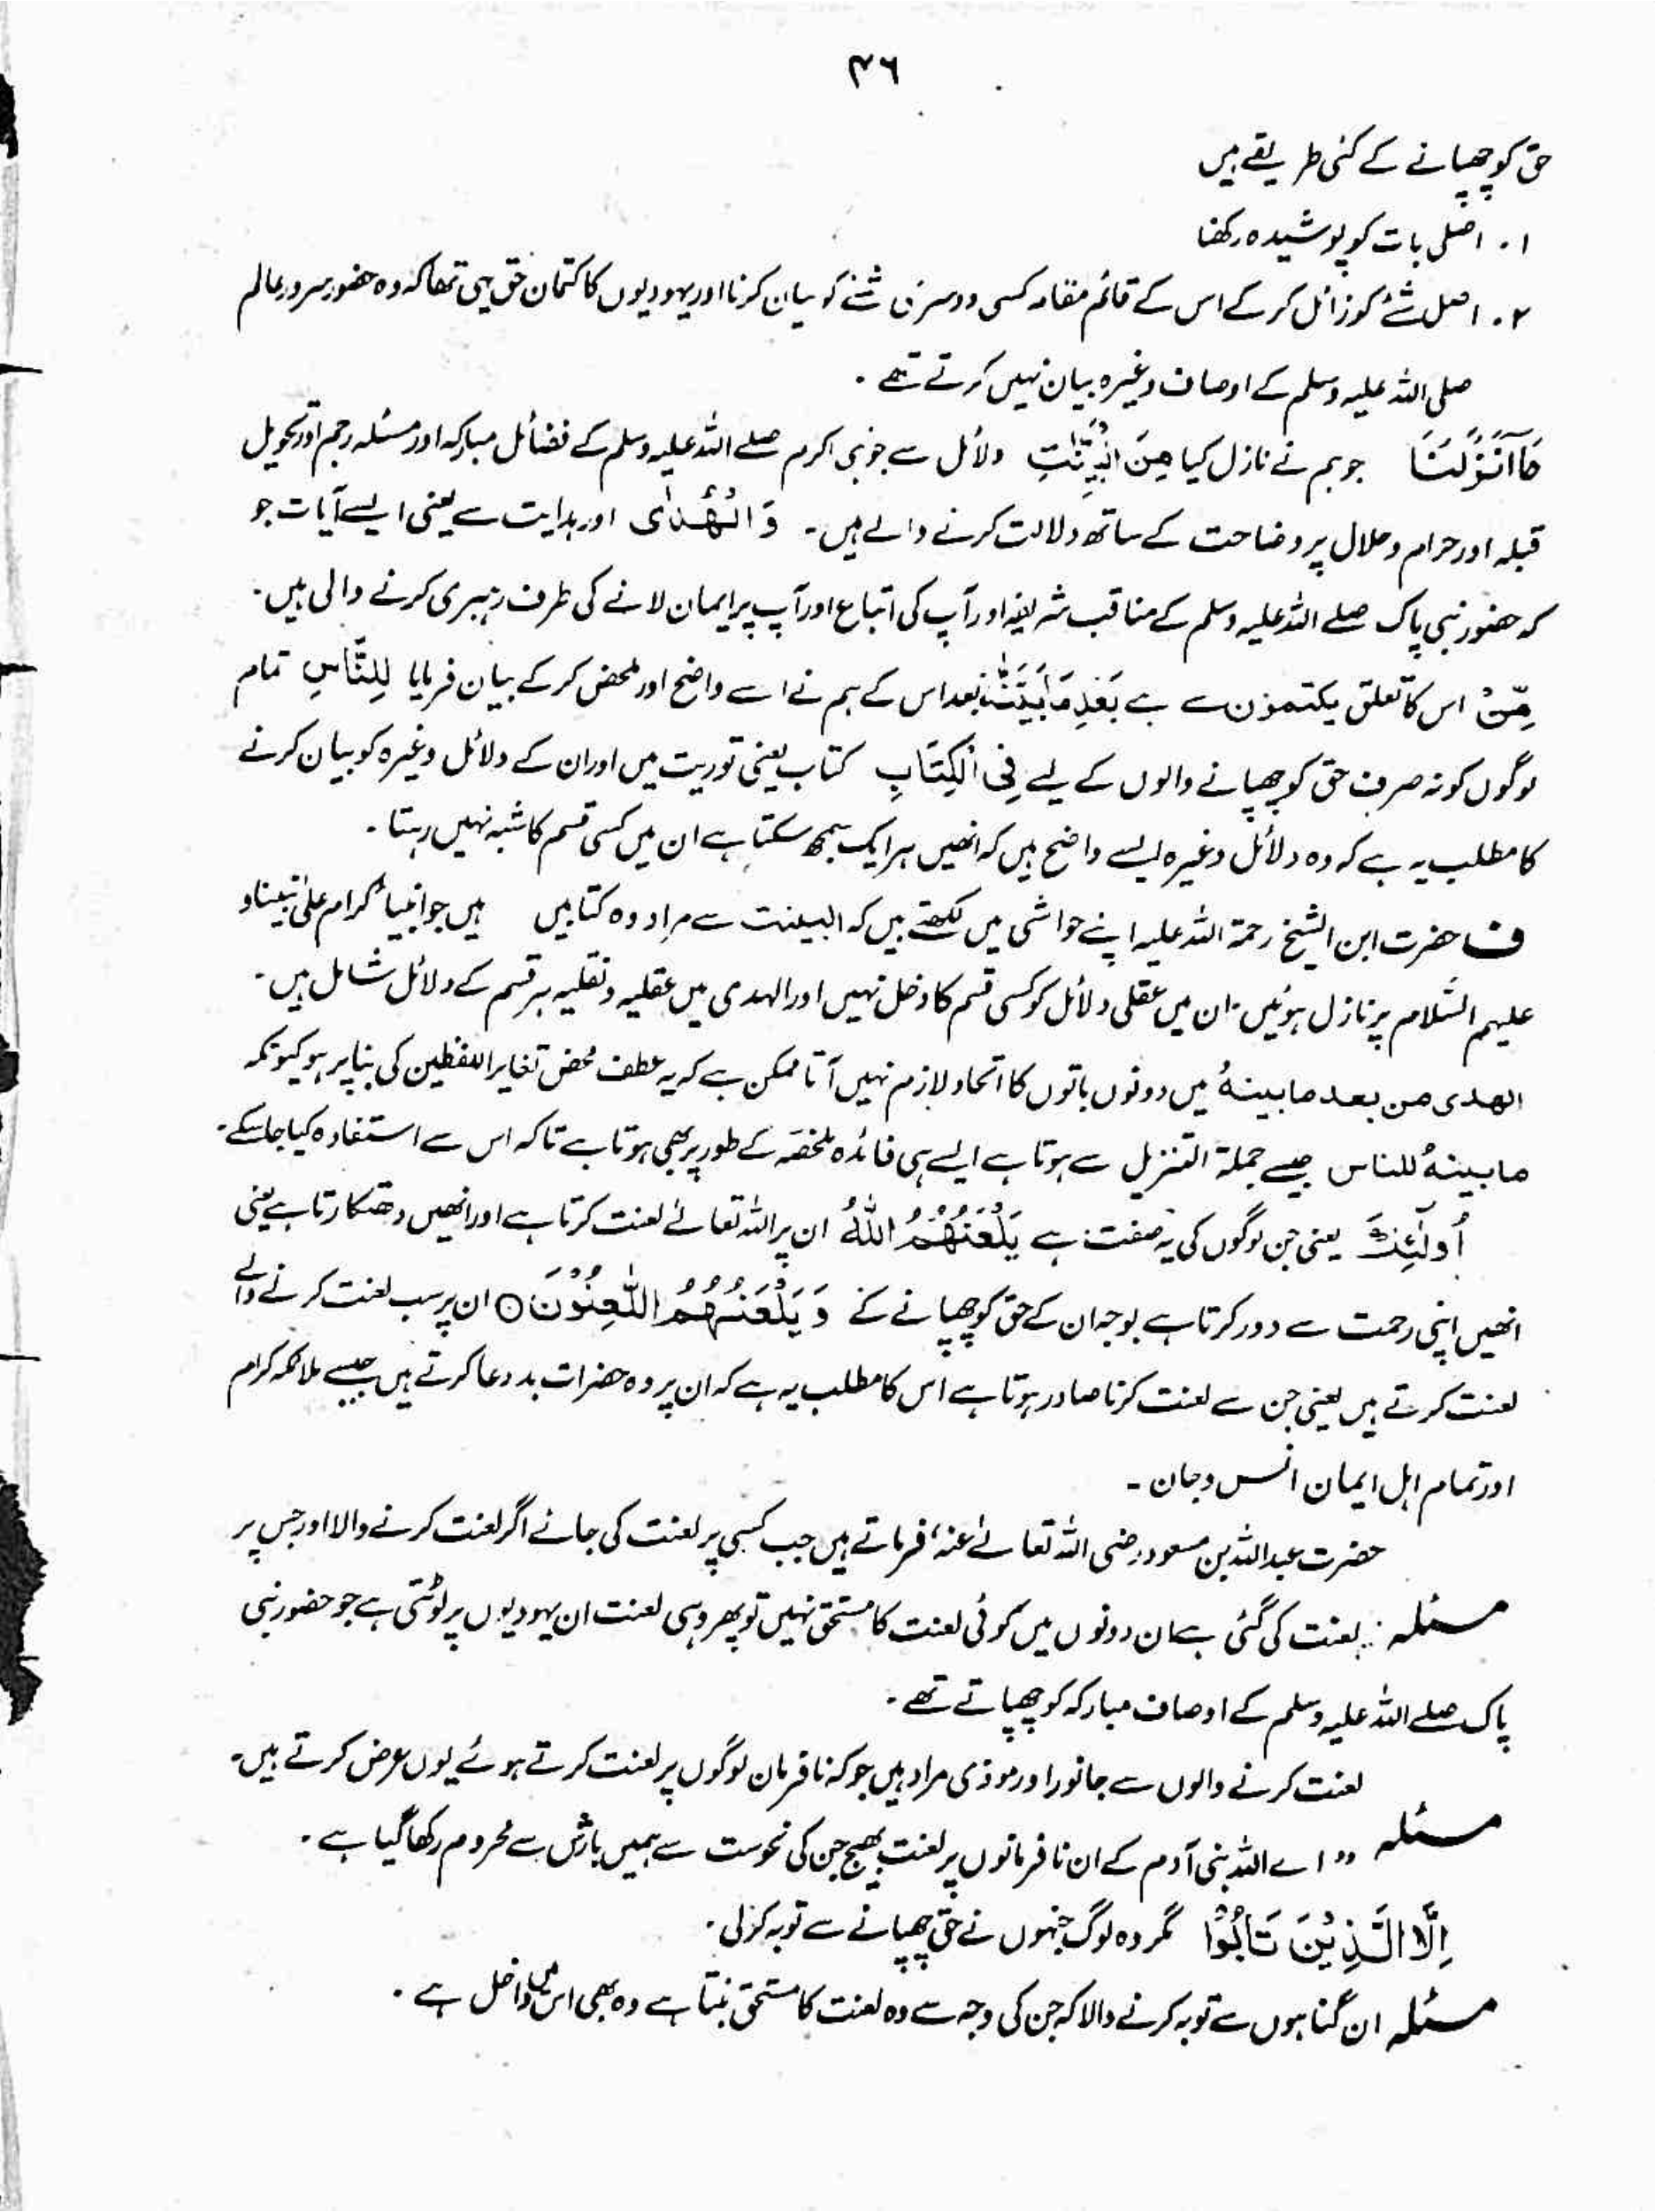 ۳٦
حق کو چھپانے کے کئی طریقے ہیں
۱. اصلی بات کو پوشیدہ رکھنا
۲. اصل شئے کو زائل کر کے اس کے قائم مقام کسی دوسری شئے کو بیان کرنا اور یہودیوں کا کتمان حق یہی تھا کہ وہ حضور سرور عالم
صلی اللہ علیہ وسلم کے اوصاف وغیرہ بیان نہیں کرتے تھے ۔
مَآ اَنْزَلْنَا جو ہم نے نازل کیا مِنَ الْبَيِّنٰتِ دلائل سے جو نبی اکرم صلے اللہ علیہ وسلم کے فضائل مبارکہ اور مسئلہ رجم اور تحویل
قبلہ اور حرام و حلال پر وضاحت کے ساتھ دلالت کرنے والے ہیں۔ وَالْهُدٰى اور ہدایت سے یعنی ایسے آیات جو
کہ حضور نبی پاک صلے اللہ علیہ وسلم کے مناقب شریفہ اور آپ کی اتباع اور آپ پر ایمان لانے کی طرف رہبری کرنے والی ہیں۔
مِنْۢ اس کا تعلق یکتمون سے ہے بَعْدِ مَا بَيَّنّٰهُ بعد اس کے ہم نے اسے واضح اور ملخص کر کے بیان فرمایا لِلنَّاسِ تمام
لوگوں کو نہ صرف حق کو چھپانے والوں کے لیے فِي الْكِتَابِ کتاب یعنی توریت میں اور ان کے دلائل وغیرہ کو بیان کرنے
کا مطلب یہ ہے کہ وہ دلائل وغیرہ ایسے واضح ہیں کہ انھیں ہر ایک سمجھ سکتا ہے ان میں کسی قسم کا شبہ نہیں رہتا ۔
ف حضرت ابن الشیخ رحمۃ اللہ علیہ اپنے حواشی میں لکھتے ہیں کہ البینت سے مراد وہ کتابیں ہیں جو انبیاء کرام علیٰ نبینا و
علیہم السّلام پر نازل ہوئیں۔ ان میں عقلی دلائل کو کسی قسم کا دخل نہیں اور الہدی میں عقلیہ و نقلیہ ہر قسم کے دلائل شامل ہیں۔
الھدی من بعد ما بینہٗ میں دونوں باتوں کا اتحاد لازم نہیں آتا ممکن ہے کہ یہ عطف محض تغایر اللفظین کی بنا پر ہو کیونکہ
ما بینہٗ للناس جیسے جملۃ التنزیل سے ہوتا ہے ایسے ہی فائدہ ملخصہ کے طور پر بھی ہوتا ہے تاکہ اس سے استفادہ کیا جا سکے۔
اُولٰٓئِكَ یعنی جن لوگوں کی یہ صفت ہے يَلْعَنُهُمُ اللّٰهُ ان پر اللہ تعالےٰ لعنت کرتا ہے اور انھیں دھتکارتا ہے یعنی
انھیں اپنی رحمت سے دور کرتا ہے بوجہ ان کے حق کو چھپانے کے وَيَلْعَنُهُمُ اللّٰعِنُوْنَ ○ ان پر سب لعنت کرنے والے
لعنت کرتے ہیں یعنی جن سے لعنت کرنا صادر ہوتا ہے اس کا مطلب یہ ہے کہ ان پر وہ حضرات بددعا کرتے ہیں جیسے ملائکہ کرام
اور تمام اہل ایمان انس وجان ۔
حضرت عبداللہ بن مسعود رضی اللہ تعالےٰ عنہٗ فرماتے ہیں جب کسی پر لعنت کی جائے اگر لعنت کرنے والا اور جس پر
مسئلہ : لعنت کی گئی ہے ان دونوں میں کوئی لعنت کا مستحق نہیں تو پھر وہی لعنت ان یہودیوں پر لوٹتی ہے جو حضور نبی
پاک صلے اللہ علیہ وسلم کے اوصاف مبارکہ کو چھپاتے تھے ۔
لعنت کرنے والوں سے جانور اور موذی مراد ہیں جو کہ نافرمان لوگوں پر لعنت کرتے ہوئے یوں عرض کرتے ہیں۔
مسئلہ "اے اللہ بنی آدم کے ان نافرمانوں پر لعنت بھیج جن کی نحوست سے ہمیں بارش سے محروم رکھا گیا ہے ۔
اِلَّا الَّذِيْنَ تَابُوْا مگر وہ لوگ جنہوں نے حق چھپانے سے توبہ کر لی ۔
مسئلہ ان گناہوں سے توبہ کرنے والا کہ جن کی وجہ سے وہ لعنت کا مستحق بنتا ہے وہ بھی اس میں داخل ہے ۔